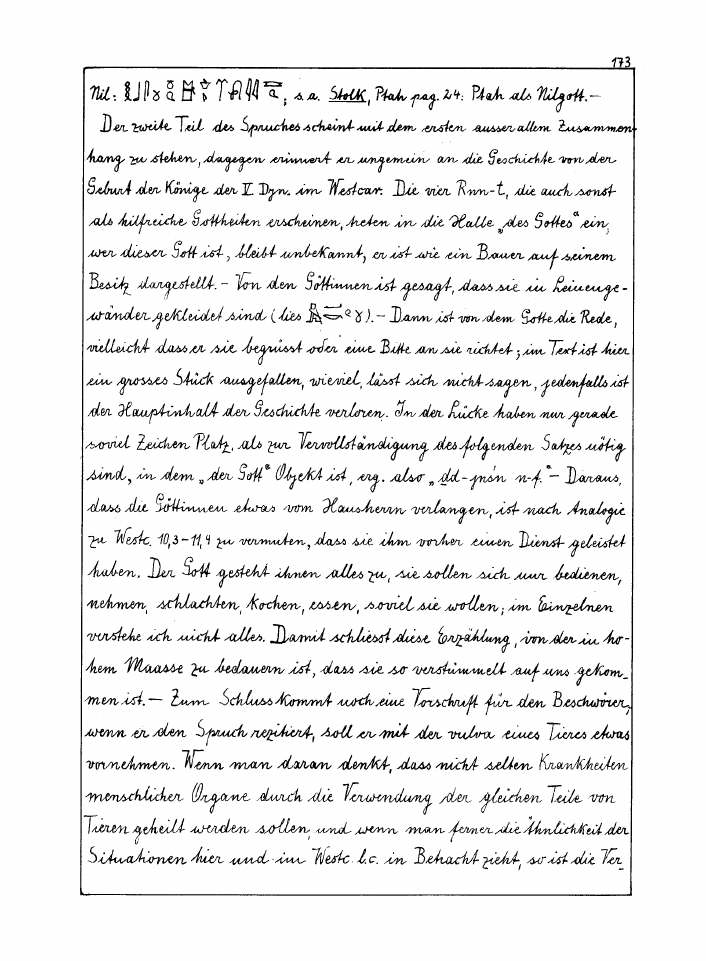 173
Nil: ; s.a. Stolk, Ptah pag. 24: Ptah als Nilgott.—
Der zweite Teil des Spruches scheint mit dem ersten ausser allem Zusammen
hang zu stehen, dagegen erinnert er ungemein an die Geschichte von der
Geburt der Könige der V. Dyn. im Westcar. Die vier Rnn-t, die auch sonst
als hilfreiche Gottheiten erscheinen, treten in die Halle „des Gottes“ ein,
wer dieser Gott ist, bleibt unbekannt, er ist wie ein Bauer auf seinem
Besitz dargestellt.— Von den Göttinnen ist gesagt, dass sie in Leinenge-
wänder gekleidet sind (lies ).— Dann ist von dem Gotte die Rede,
vielleicht dass er sie begrüsst oder eine Bitte an sie richtet; im Text ist hier
ein grosses Stück ausgefallen, wieviel, lässt sich nicht sagen, jedenfalls ist
der Hauptinhalt der Geschichte verloren. In der Lücke haben nur gerade
soviel Zeichen Platz, als zur Vervollständigung des folgenden Satzes nötig
sind, in dem „der Gott“ Objekt ist, erg. also „ḏd-jnśn n-f.“— Daraus,
dass die Göttinnen etwas vom Hausherrn verlangen, ist nach Analogie
zu Westc. 10,3–11,4 zu vermuten, dass sie ihm vorher einen Dienst geleistet
haben. Der Gott gesteht ihnen alles zu, sie sollen sich nur bedienen,
nehmen, schlachten, kochen, essen, soviel sie wollen; im Einzelnen
verstehe ich nicht alles. Damit schliesst diese Erzählung, von der in ho-
hem Maasse zu bedauern ist, dass sie so verstümmelt auf uns gekom-
men ist.— Zum Schluss kommt noch eine Vorschrift für den Beschwörer,
wenn er den Spruch rezitiert, soll er mit der vulva eines Tieres etwas
vornehmen. Wenn man daran denkt, dass nicht selten Krankheiten
menschlicher Organe durch die Verwendung der gleichen Teile von
Tieren geheilt werden sollen, und wenn man ferner die Ähnlichkeit der
Situationen hier und im Westc. l.c. in Betracht zieht, so ist die Ver-